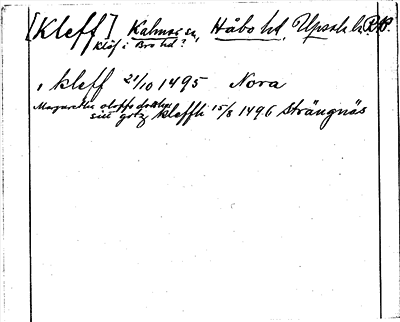 [Kleff] Kalmar sn, Håbo hd, Upsala l. RAP.
Klöf i Bro hd?
i kleff 21/10 1495 Nora
Margaretha oloffs dotter
sitt gotz kleffh 15/8 1496 Strängnäs